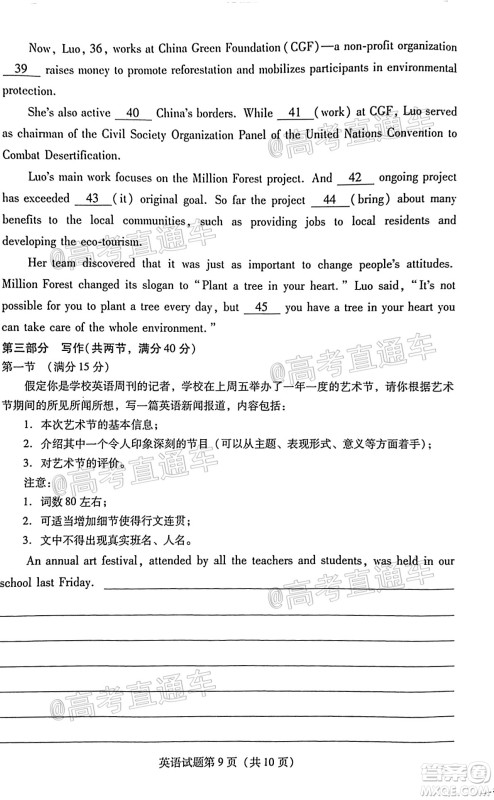 Now, Luo, 36, works at China Green Foundation (CGF)—a non-profit organization
39 raises money to promote reforestation and mobilizes participants in environmental
protection.
She's also active 40 China's borders. While 41 (work) at CGF, Luo served
as chairman of the Civil Society Organization Panel of the United Nations Convention to
Combat Desertification.
Luo's main work focuses on the Million Forest project. And 42 ongoing project
has exceeded 43 (it) original goal. So far the project 44 (bring) about many
benefits to the local communities, such as providing jobs to local residents and
developing the eco-tourism.
Her team discovered that it was important to change people's attitudes.
Million Forest changed its slogan to “Plant a tree in your heart.” Luo said, “It's not
possible for you to plant a tree every day, but 45 you have a tree in your heart you
can take care of the whole environment.”
第三部分 写作(共两节，满分40分)
第一节 (满分15分)
假定你是学校英语周刊的记者，学校在上周五举办了一年一度的艺术节，请你根据艺术
节期间的所见所闻所想，写一篇英语新闻报道，内容包括：
1. 本次艺术节的基本信息；
2. 介绍其中一个令人印象深刻的节目（可以从主题、表现形式、意义等方面展开）；
3. 对艺术节的评价。
注意：
1. 词数80左右；
2. 可适当增加细节使得行文连贯；
3. 文中不得出现真实班名、人名。
An annual art festival, attended by all the teachers and students, was held in our
school last Friday.
英语试题第9页（共10页）
@高考直通车
@高考直通车
@高考直通车
@高考直通车
@高考直通车
@高考直通车
答案圈
MXQE.COM